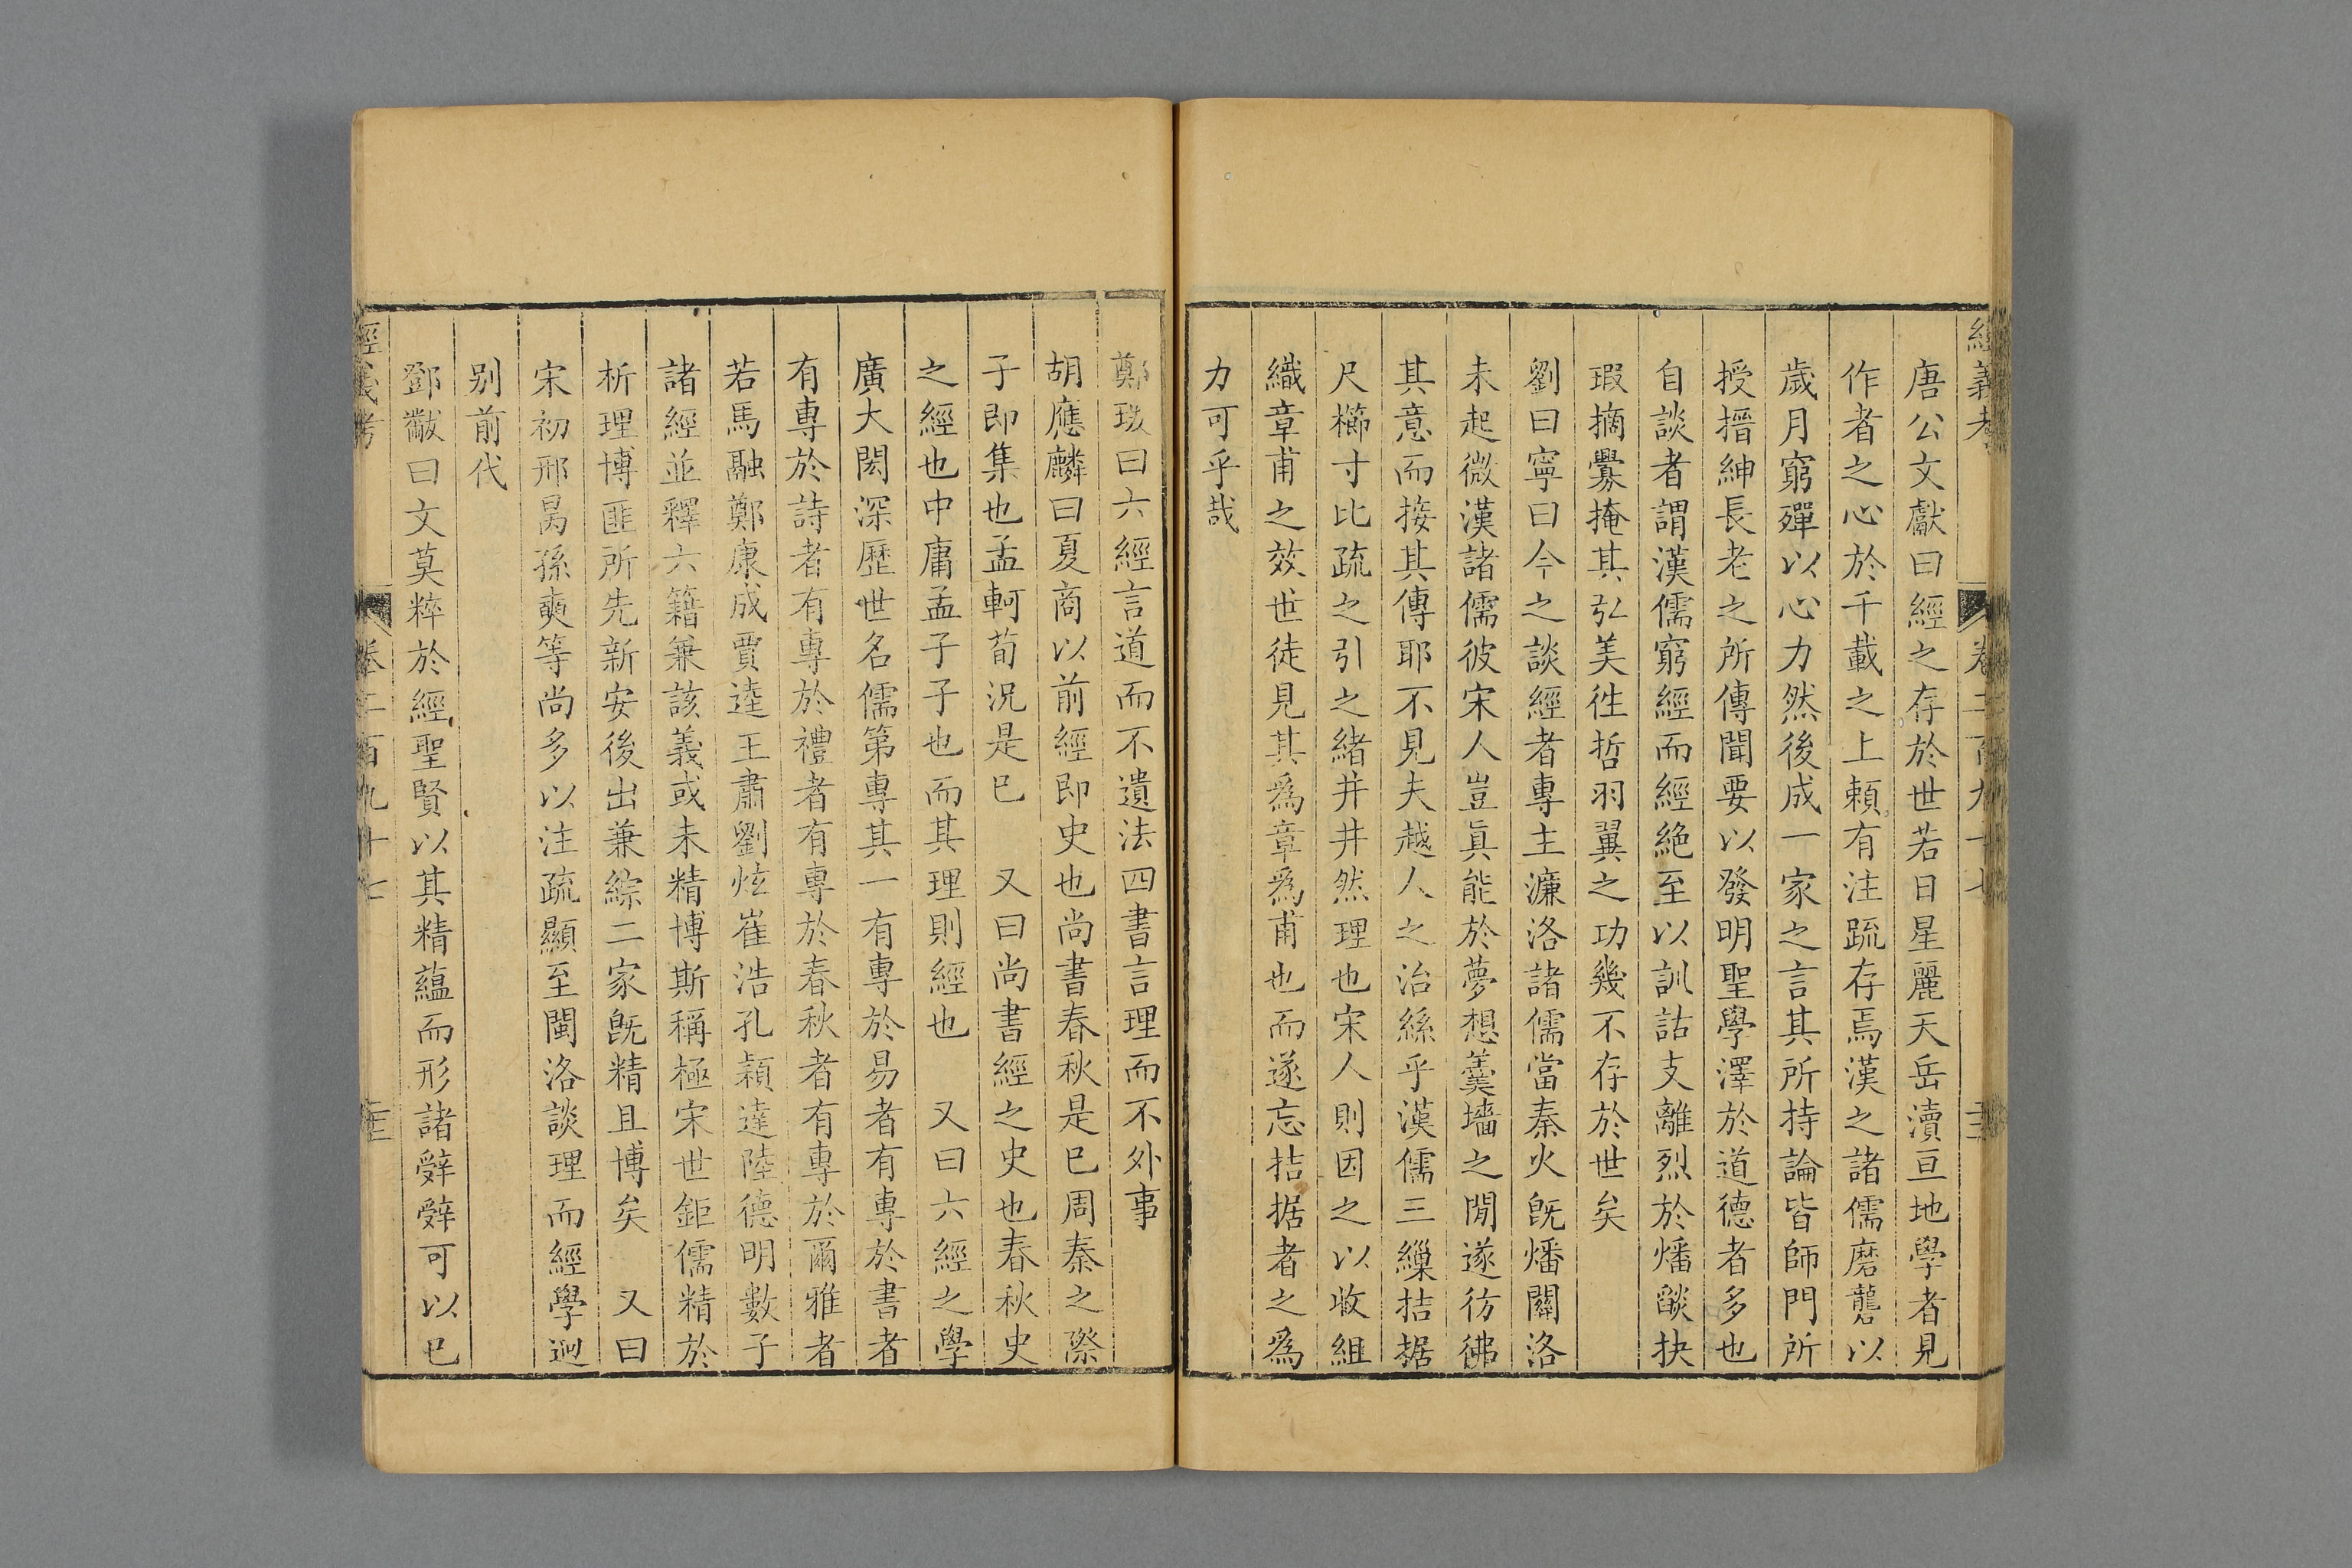 經義考 卷二百九十七
唐公文獻曰經之存於世若日星麗天岳瀆亘地學者見
作者之心於千載之上頼有注疏存焉漢之諸儒磨礱以
歲月窮殫以心力然後成一家之言其所持論皆師門所
授搢紳長老之所傳聞要以發明聖學澤於道德者多也
自談者謂漢儒窮經而經絶至以訓詁支離烈於燔燄抉
瑕摘釁掩其弘美徃哲羽翼之功幾不存於世矣
劉曰寧曰今之談經者專主濂洛諸儒當秦火旣燔關洛
未起微漢諸儒彼宋人豈眞能於夢想羹墻之閒遂彷彿
其意而接其傳耶不見夫越人之治絲乎漢儒三繅拮据
尺櫛寸比疏之引之緒井井然理也宋人則因之以收組
織章甫之效世徒見其爲章爲甫也而遂忘拮据者之爲
力可乎哉
鄭瑗曰六經言道而不遺法四書言理而不外事
胡應麟曰夏商以前經即史也尚書春秋是巳周秦之際
子即集也孟軻荀況是巳 又曰尚書經之史也春秋史
之經也中庸孟子子也而其理則經也 又曰六經之學
廣大閎深歷世名儒第專其一有專於易者有專於書者
有專於詩者有專於禮者有專於春秋者有專於爾雅者
若馬融鄭康成賈逵王肅劉炫崔浩孔穎達陸德明數子
諸經並釋六籍兼該義或未精博斯稱極宋世鉅儒精於
析理博匪所先新安後出兼綜二家旣精且博矣 又曰
宋初邢昺孫奭等尚多以注疏顯至閩洛談理而經學迥
别前代
鄧黻曰文莫粹於經聖賢以其精蘊而形諸辤辤可以巳
經義考 卷二百九十七